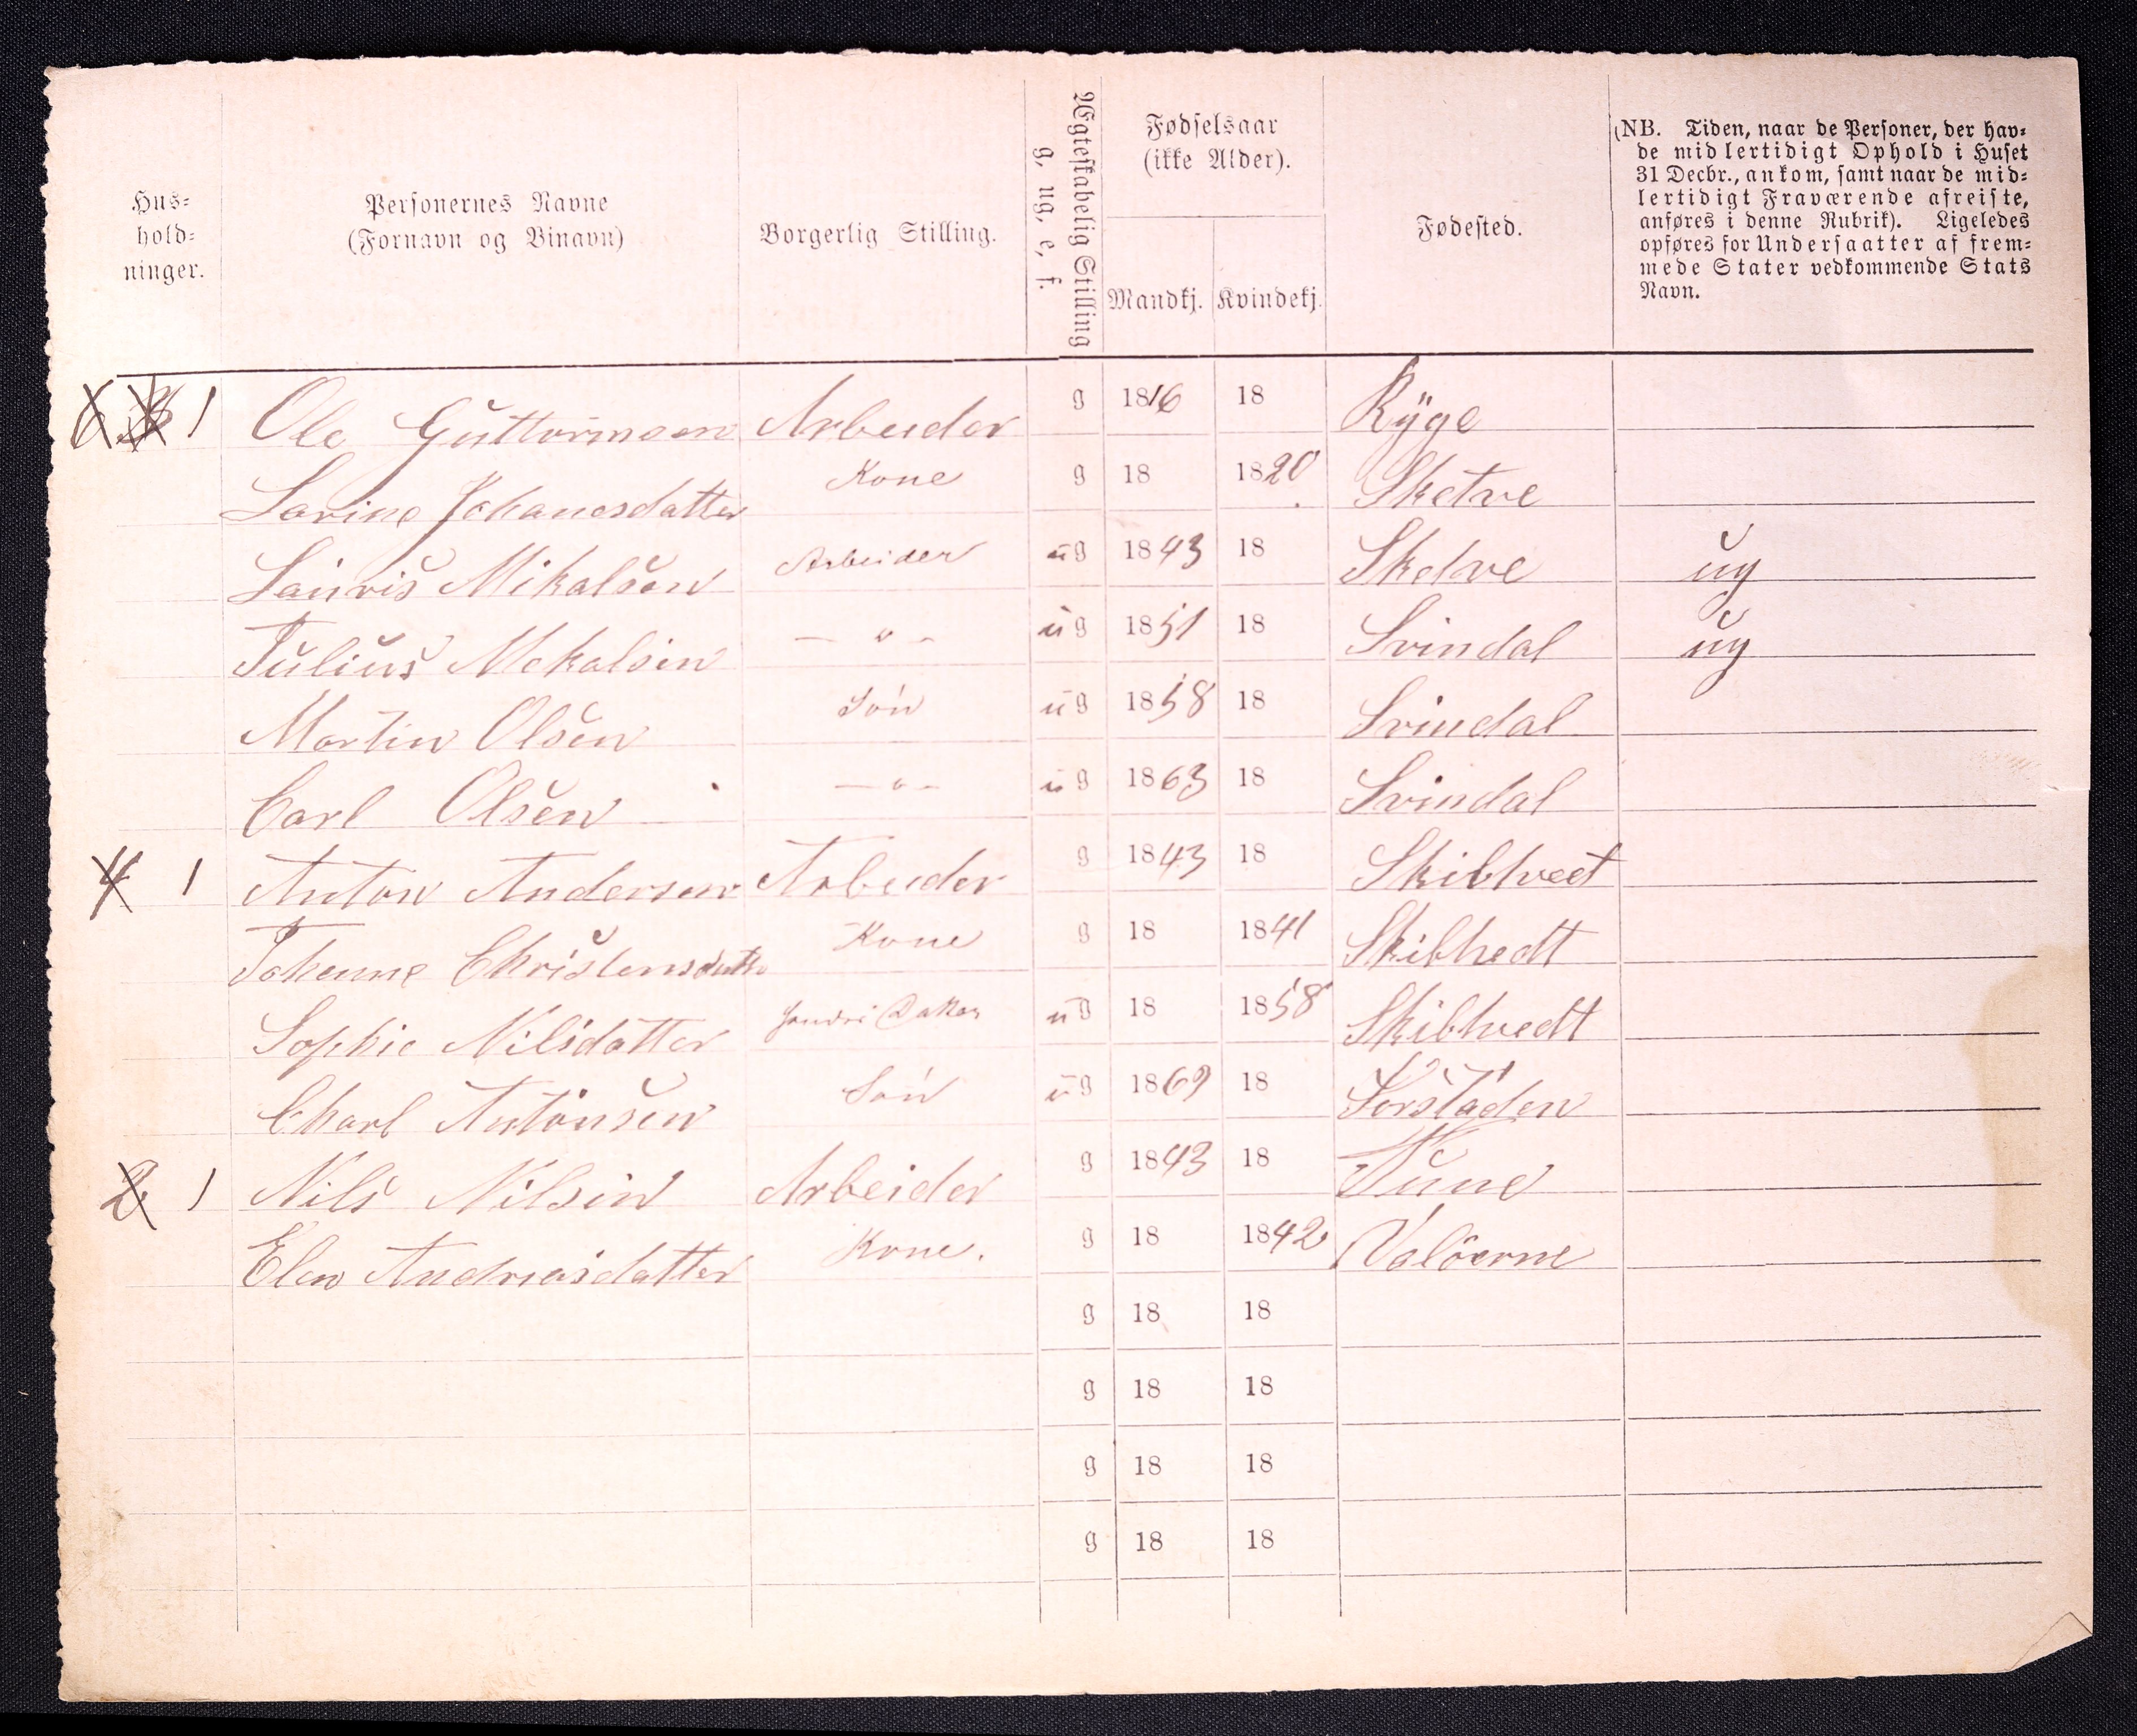 Hus-
hold-
ninger.
Personernes Navne
(Fornavn og Binavn)
Borgerlig Stilling.
Ægteskabelig Stilling
g, ug, e, f.
Fødselsaar
(ikke Alder).
Mandkj. Kvindekj.
Fødested.
(NB. Tiden, naar de Personer, der hav-
de midlertidigt Ophold i Huset
31 Decbr., ankom, samt naar de mid-
lertidigt Fraværende afreiste,
anføres i denne Rubrik). Ligeledes
opføres for Undersaatter af frem-
mede Stater vedkommende Stats
Navn.
1 Ole Guttormsen Arbeider g 1816 18 Ryge
Larine Johanesdatter Kone g 18 1820 Sketve
Lauris Mikalsen Arbeider ug 1843 18 Sketve ug
Julius Mekalsen — " — ug 1851 18 Svindal ug
Martin Olsen Søn ug 1858 18 Svindal
Carl Olsen — " — ug 1863 18 Svindal
4 1 Anton Andersen Arbeider g 1843 18 Skibtvedt
Johanne Christensdatter Kone g 18 1841 Skibtvedt
Sophie Nilsdatter ug 18 1858 Skibtvedt
Charl Antonsen Søn ug 1869 18
2 1 Nils Nilsen Arbeider g 1843 18 Tune
Elen Andreasdatter Kone. g 18 1842 Valøerne
g 18 18
g 18 18
g 18 18
g 18 18